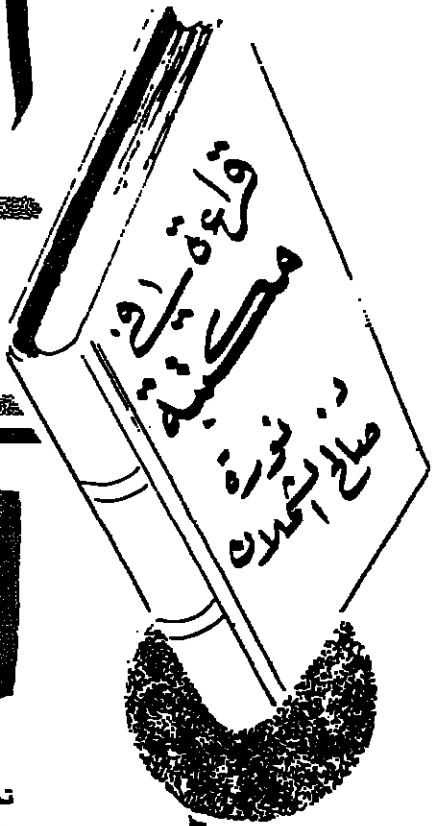 قراءة في
مكتبة
د. نورة
صالح الشملان